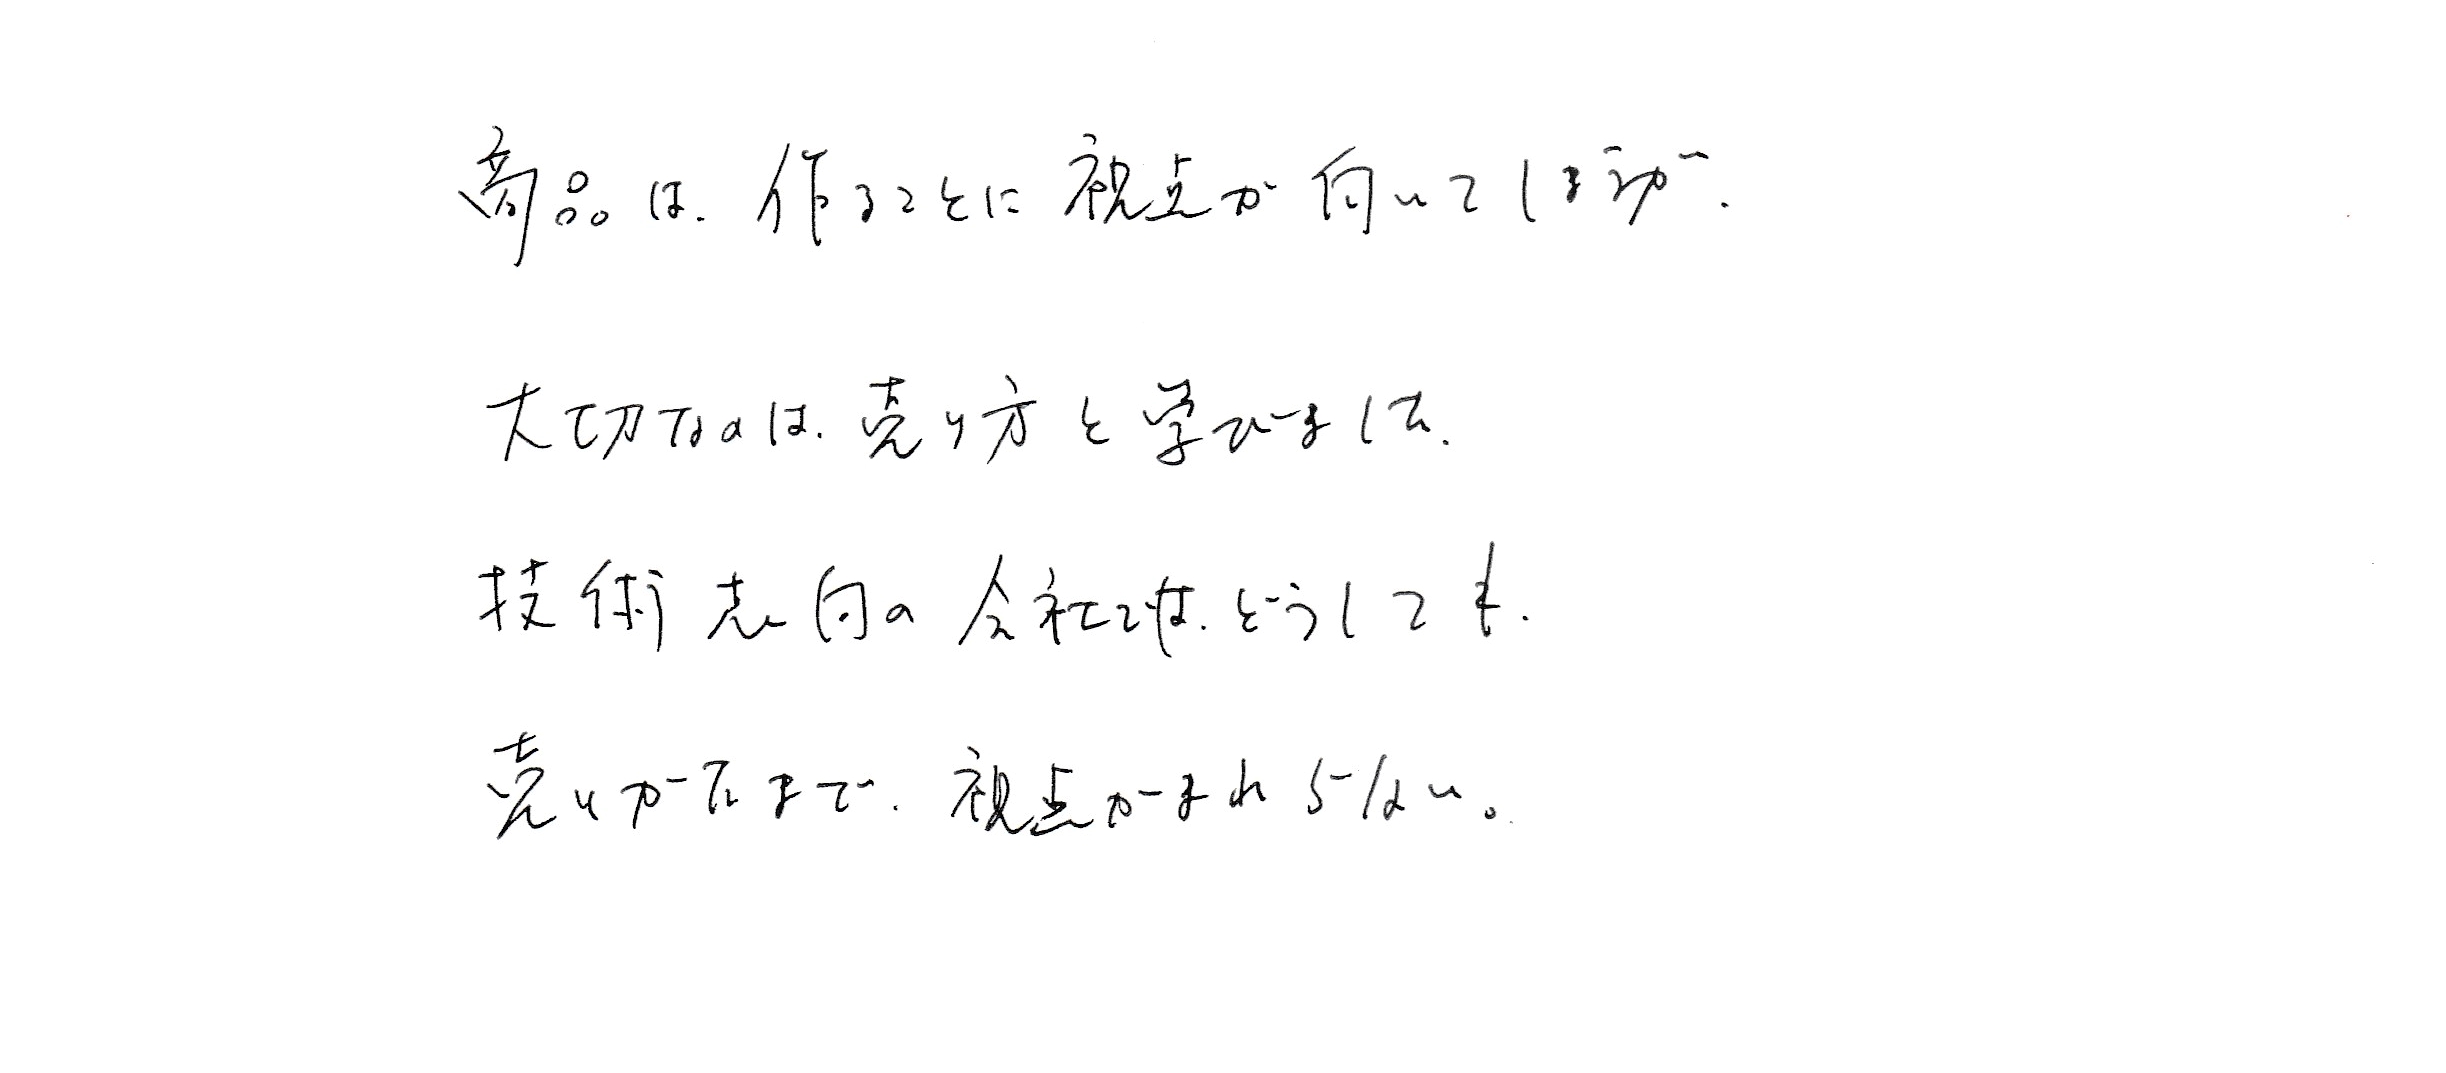 商品は、作ることに視点が向いてしまうが、
大切なのは、売り方と学びました、
技術志向の会社では、どうしても、
売りかたまで、視点がまわらない。